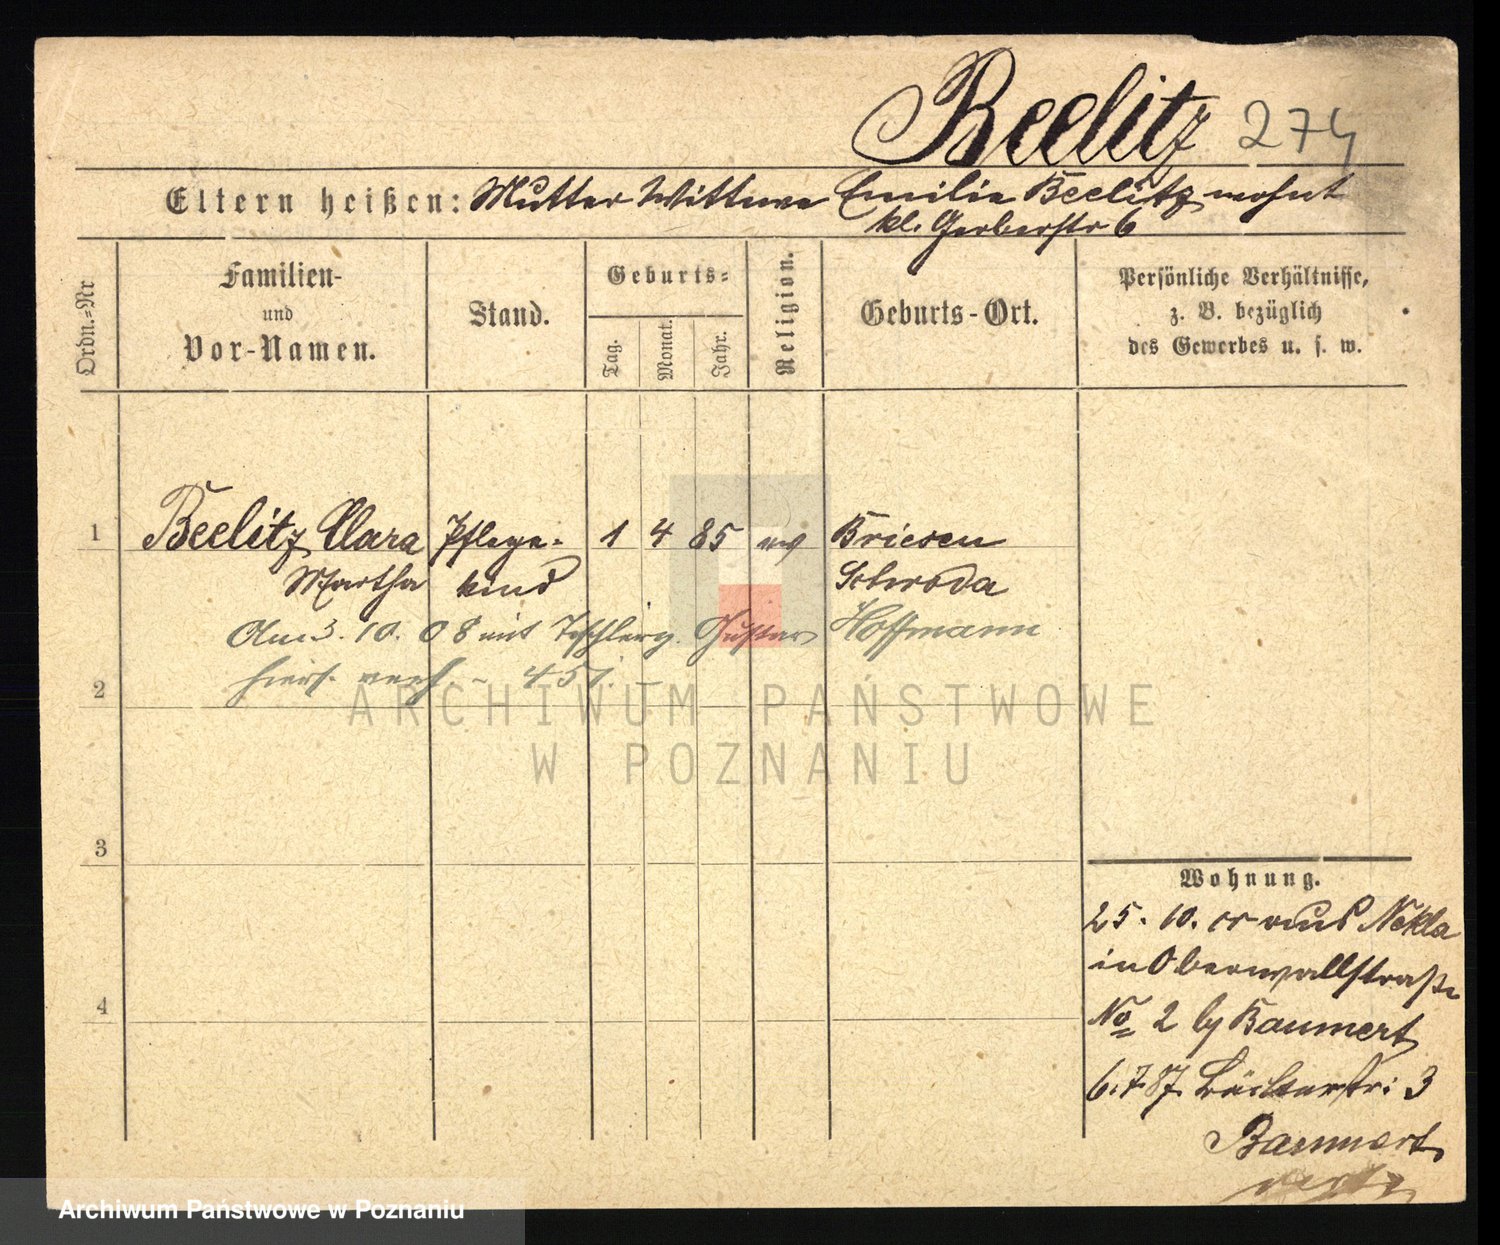 Beelitz 274
Eltern heißen: Mutter Wittwe Emilie Beelitz wohnt
kl. Gerberstr 6
Ordn.-Nr
Familien-
und
Vor-Namen.
Stand.
Geburts-
Tag.
Monat.
Jahr.
Religion.
Geburts-Ort.
Persönliche Verhältnisse,
z. B. bezüglich
des Gewerbes u. s. w.
1 Beelitz Clara Pflege- 1 4 85 ev Briesen
Martha kind Schroda
Am 3. 10. 08 mit Tischlerg. Gustav Hoffmann
hiers. verh. - 451. -
2
3
4
Wohnung.
25. 10. cr aus Nekla
in Oberwallstraße
No 2 by Baumert
6.7.87. Bäckerstr: 3
Baumert
ARCHIWUM PAŃSTWOWE
W POZNANIU
Archiwum Państwowe w Poznaniu